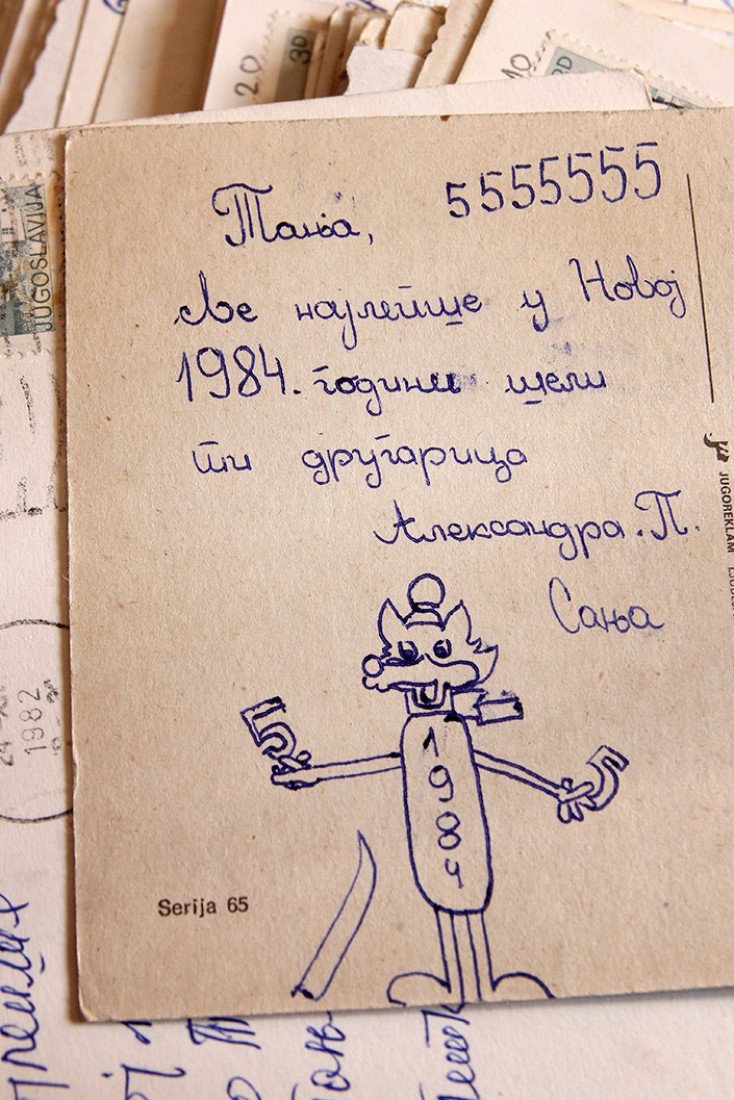 2.0
3D
JUGOSLAVIJA
Тања, 5555555
Све најлепше у Новој
1984. години жели
ти другарица
Александра.П.
Сања
JUGOREKLAM
5 5
1984
Serija 65
1982